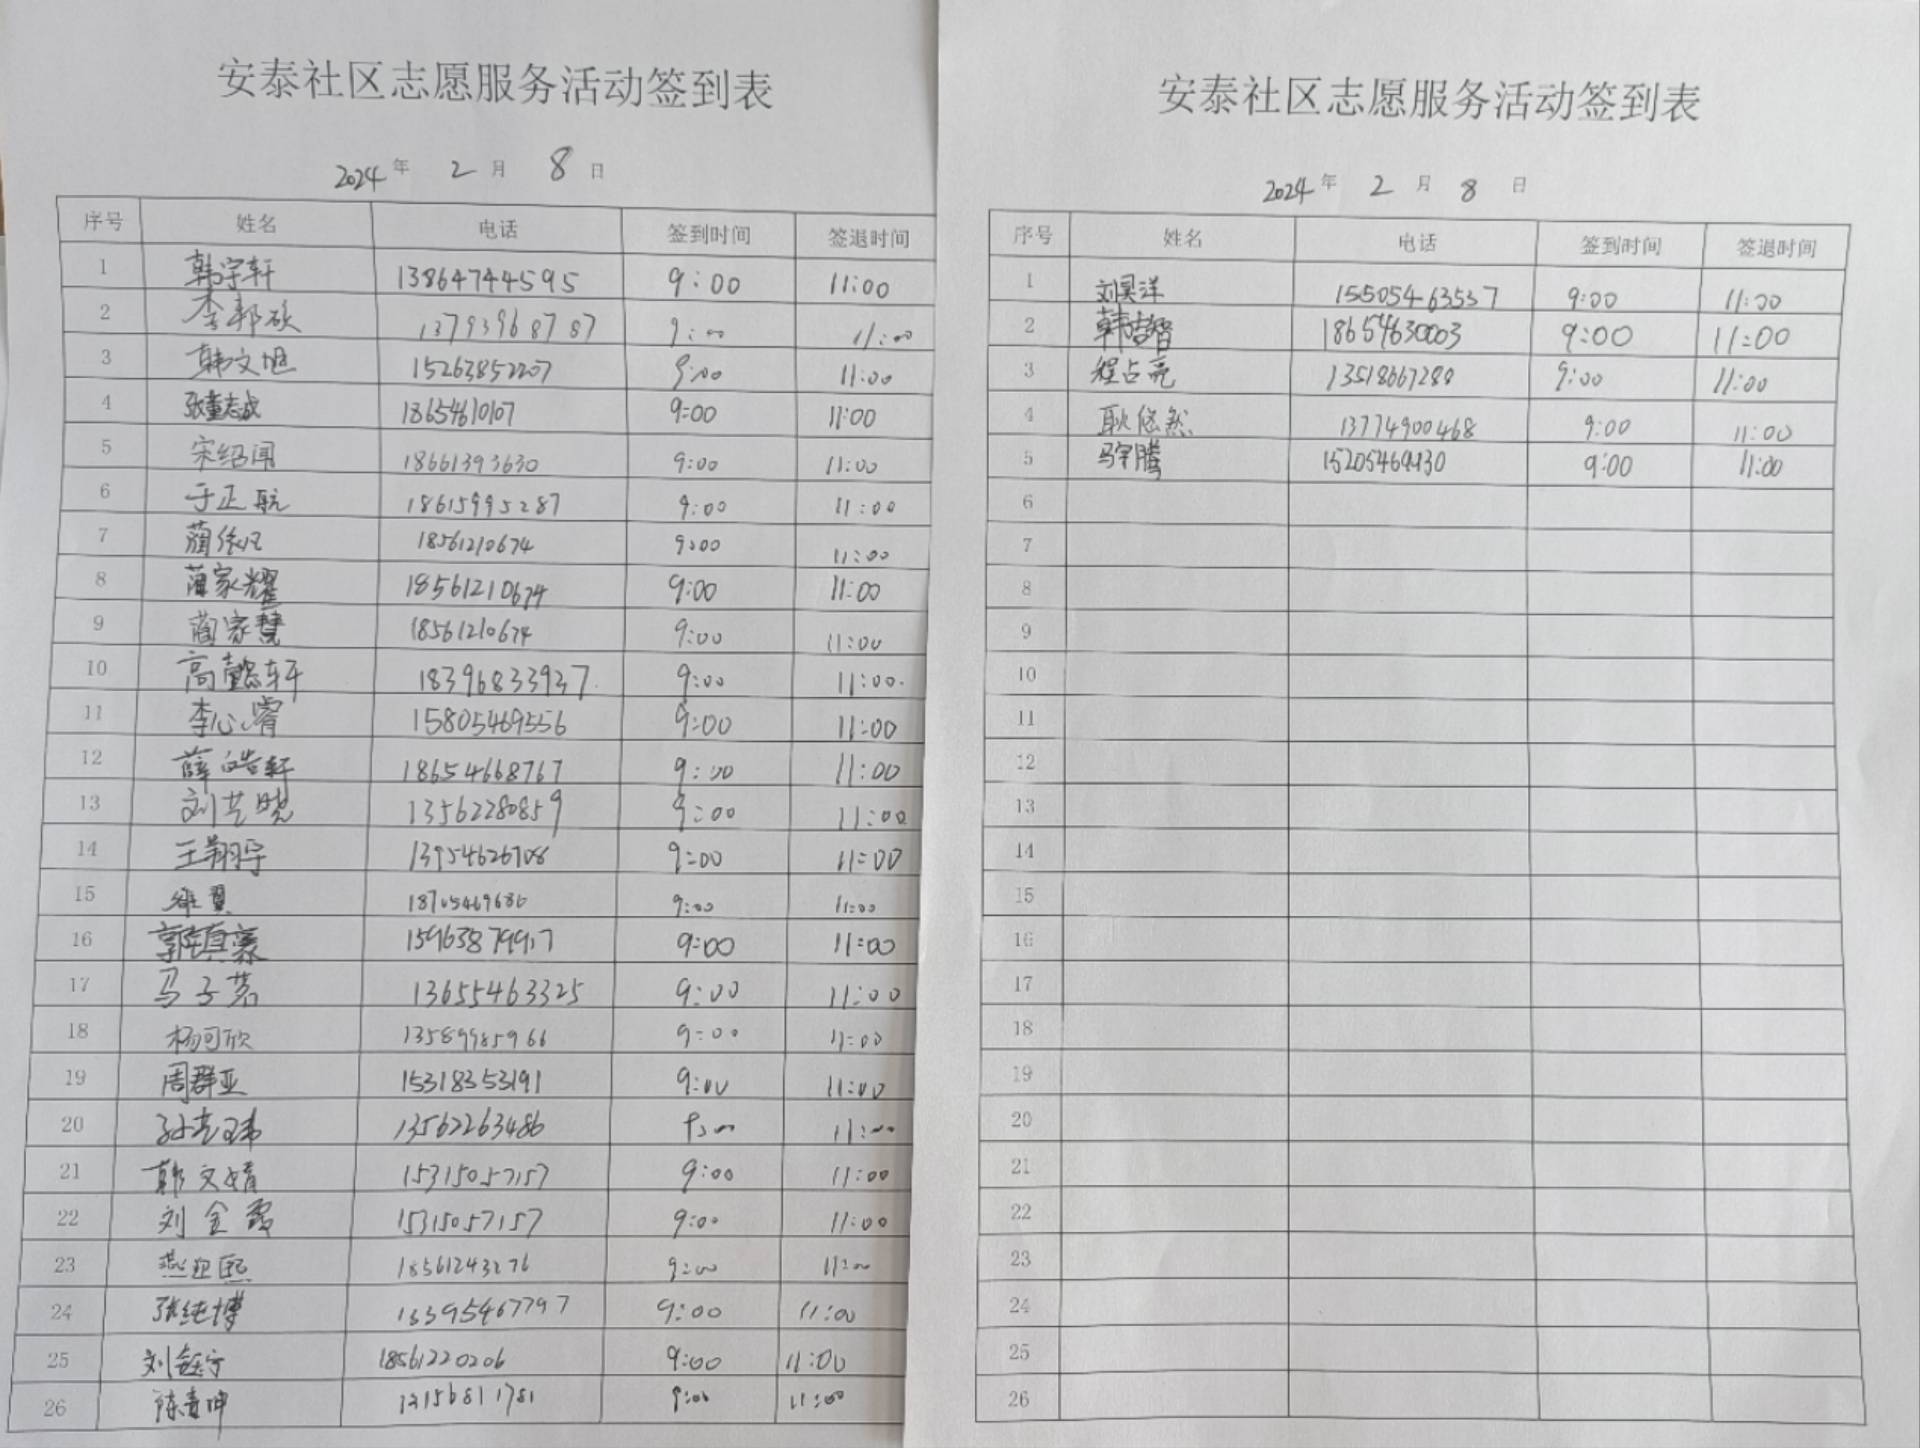 安泰社区志愿服务活动签到表
2024年 2月 8日
序号 姓名 电话 签到时间 签退时间
1 韩宇轩 13864744595 9:00 11:00
2 李郭硕 13793968787 9:00 11:00
3 韩文旭 15263852207 9:00 11:00
4 张童志成 18654610107 9:00 11:00
5 宋绍闻 18661393630 9:00 11:00
6 于正航 18615995287 9:00 11:00
7 蔺 18561210674 9:00 11:00
8 蔺家耀 18561210674 9:00 11:00
9 蔺家慧 18561210674 9:00 11:00
10 高懿轩 18396833937 9:00 11:00
11 李心睿 15805469556 9:00 11:00
12 薛皓轩 18654668767 9:00 11:00
13 刘艺晓 13562280859 9:00 11:00
14 王翔宇 13954626708 9:00 11:00
15 18705469686 9:00 11:00
16 郭真豪 9:00 11:00
17 马子茗 13655463325 9:00 11:00
18 杨可欣 13589985966 9:00 11:00
19 周群亚 15318353191 9:00 11:00
20 孙 13562263486 9:00 11:00
21 韩文婧 15315057157 9:00 11:00
22 刘金霞 15315057157 9:00 11:00
23 燕 熙 18561243276 9:00 11:00
24 张纯博 13395467797 9:00 11:00
25 刘钰宁 18561220206 9:00 11:00
26 陈 坤 9:00 11:00
安泰社区志愿服务活动签到表
2024年 2月 8日
序号 姓名 电话 签到时间 签退时间
1 刘昊洋 15505463537 9:00 11:00
2 韩 智 18654630003 9:00 11:00
3 程占亮 13518667289 9:00 11:00
4 耿悠然 13774900468 9:00 11:00
5 马宇腾 9:00 11:00
6
7
8
9
10
11
12
13
14
15
16
17
18
19
20
21
22
23
24
25
26